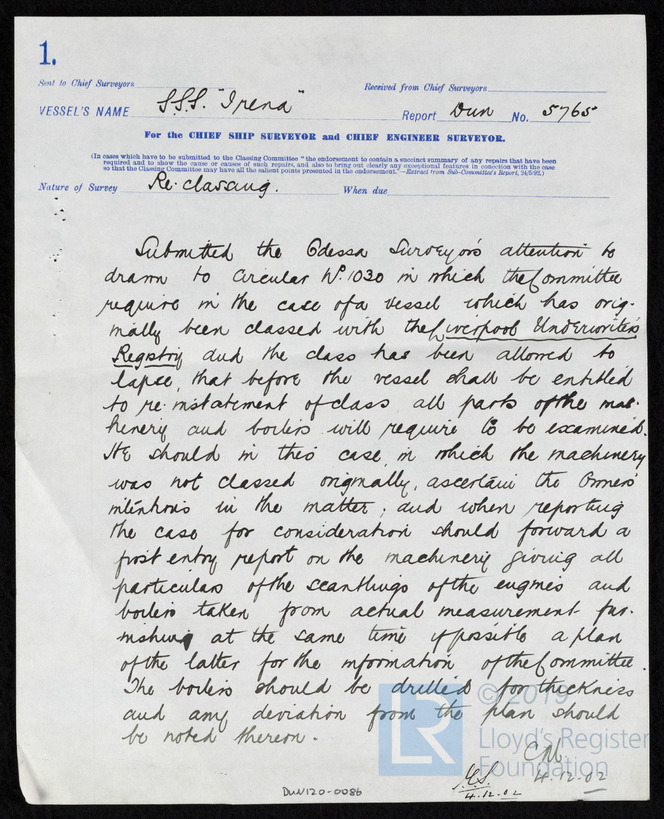 1.
Sent to Chief Surveyors
Received from Chief Surveyors
VESSEL'S NAME S.S.S. "Irena"
Report Dun No. 5765
For the CHIEF SHIP SURVEYOR and CHIEF ENGINEER SURVEYOR.
(In cases which have to be submitted to the Classing Committee "the endorsement to contain a succinct summary of any repairs that have been
required and to show the cause or causes of such repairs, and also to bring out clearly any exceptional features in connexion with the case
so that the Classing Committee may have all the salient points presented in the endorsement."—Extract from Sub-Committee's Report, 24/5/93.)
Nature of Survey Re-classing. When due
Submitted the Odessa Surveyor's attention be
drawn to Circular No. 1030 in which the Committee
require in the case of a vessel which has orig-
inally been classed with the Liverpool Underwriters
Registry and the class has been allowed to
lapse, that before the vessel shall be entitled
to re-instatement of class all parts of the mac-
hinery and boilers will require to be examined.
He should in this case, in which the machinery
was not classed originally, ascertain the Owners'
intentions in the matter; and when reporting
the case for consideration should forward a
first entry report on the machinery giving all
particulars of the scantlings of the engines and
boilers taken from actual measurement fur-
nishing at the same time if possible a plan
of the latter for the information of the Committee.
The boilers should be drilled for thickness
and any deviation from the plan should
be noted thereon.
4.12.02
4.12.02
DUN120-0086
LR
© 2019
Lloyd's Register
Foundation